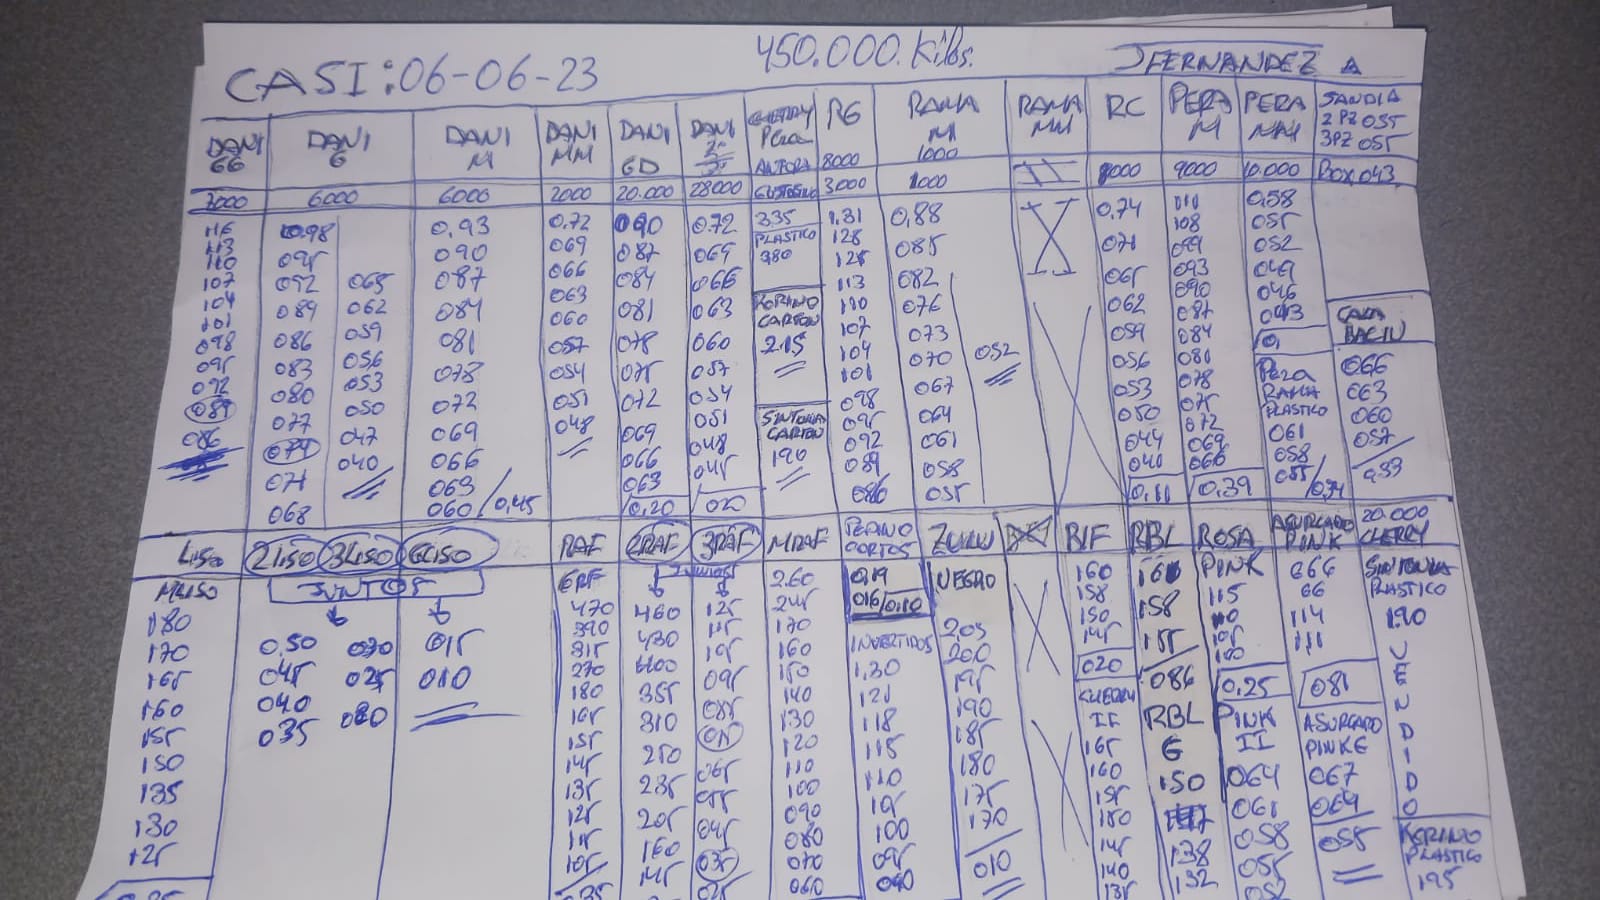 CASI: 06-06-23
450.000 Kilos.
JFERNANDEZ A
DANI GG
DANI G
DANI M
DANI MM
DANI GD
DANI
CHERRY Pera
RG
RAMA M
RAMA MM
RC
PERA M
PERA MM
SANDIA
2PZ 035
3PZ 055
BOX 043
8000
1000
3000 6000 6000 2000 20.000 28000
3000 1000 9000 10.000
116
113
110
107
104
101
098
095
092
089
086
0.98
095
092
089
086
083
080
077
074
071
068
065
062
059
056
053
050
047
040
0,93
090
087
084
081
078
072
069
066
063
060 / 0,45
0.72
069
066
063
060
057
054
051
048
090
087
084
081
078
075
072
069
066
063
0,20
0.72
069
066
063
060
057
054
051
048
045
020
335
PLASTICO
380
CARTON
215
SINTONIA
CARTON
190
1.31
128
125
113
110
107
104
101
098
095
092
089
086
0,88
085
082
076
073
070
067
064
061
058
055
052
0.74
071
065
062
059
056
053
050
044
040
0,11
111
108
099
093
090
087
084
081
078
075
072
069
066
0,39
0.58
055
052
049
046
043
Pera
RAMA
PLASTICO
061
058
055
CAJA
066
063
060
057
033
LISO
2LISO
3LISO
GLISO
JUNTOS
MLISO
180
170
165
160
155
150
135
130
125
0,50
045
040
035
030
025
020
015
010
RAF
2RAF
3RAF
MRAF
JUNTOS
GRF
470
390
315
270
180
165
155
145
135
125
115
105
460
430
400
355
310
250
235
205
160
145
125
115
105
095
085
075
065
055
045
035
025
2.60
245
170
160
150
140
130
120
110
100
090
080
070
060
CORTOS
0,19
016/0,10
INVERTIDOS
1,30
121
118
115
110
105
100
095
090
ZULU
NEGRO
205
200
195
190
185
180
175
170
010
160
158
150
145
020
CHERRY
165
160
155
150
145
140
135
RBL
160
158
155
086
RBL
G
150
138
132
ROSA
PINK
115
110
105
100
0,25
PINK
II
064
061
058
055
052
ASURCADO
PINK
666
66
114
111
081
ASURCADO
PINK G
067
064
058
20.000
CHERRY
SINTONIA
PLASTICO
190
V
E
N
D
I
D
O
PLASTICO
195